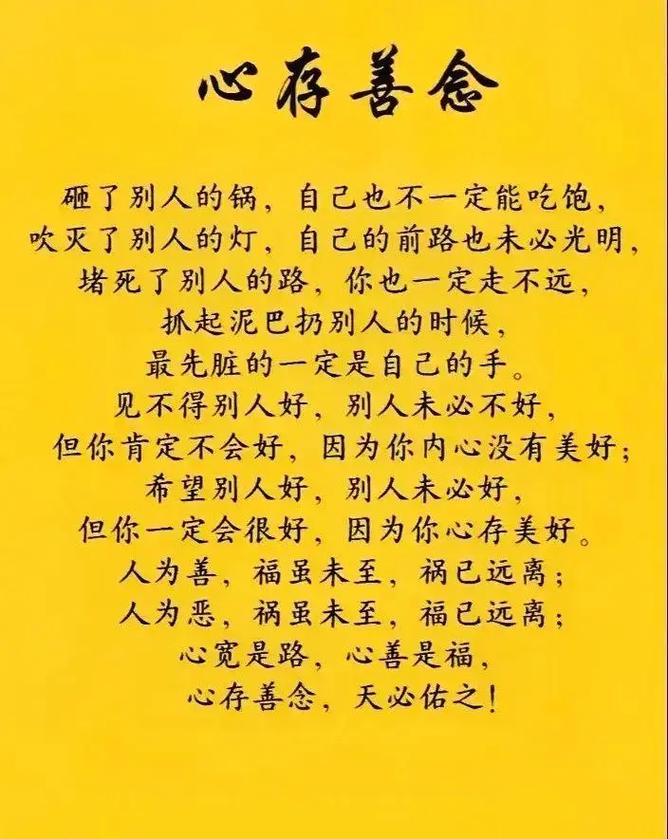 心存善念
砸了别人的锅，自己也不一定能吃饱，
吹灭了别人的灯，自己的前路也未必光明，
堵死了别人的路，你也一定走不远，
抓起泥巴扔别人的时候，
最先脏的一定是自己的手。
见不得别人好，别人未必不好，
但你肯定不会好，因为你内心没有美好；
希望别人好，别人未必好，
但你一定会很好，因为你心存美好。
人为善，福虽未至，祸已远离；
人为恶，祸虽未至，福已远离；
心宽是路，心善是福，
心存善念，天必佑之！